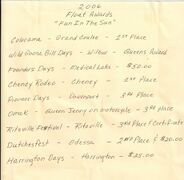 2006
Float Awards
"Fun In The Sun"
Colorama - Grand Coulee - 2nd Place
Wild Goose Bill Days - Wilbur - Queens Award
Founders Days - Medical Lake - $50.00
Cheney Rodeo - Cheney - 2nd Place
Pioneer Days - Davenport - 3rd Place
Omak - Queen Jenny on motorcycle - 3rd place
Ritzville Festival - Ritzville - 3rd Place & Certificate
Deutchesfest - Odessa - 2nd Place & $20.00
Harrington Days - Harrington - $25.00